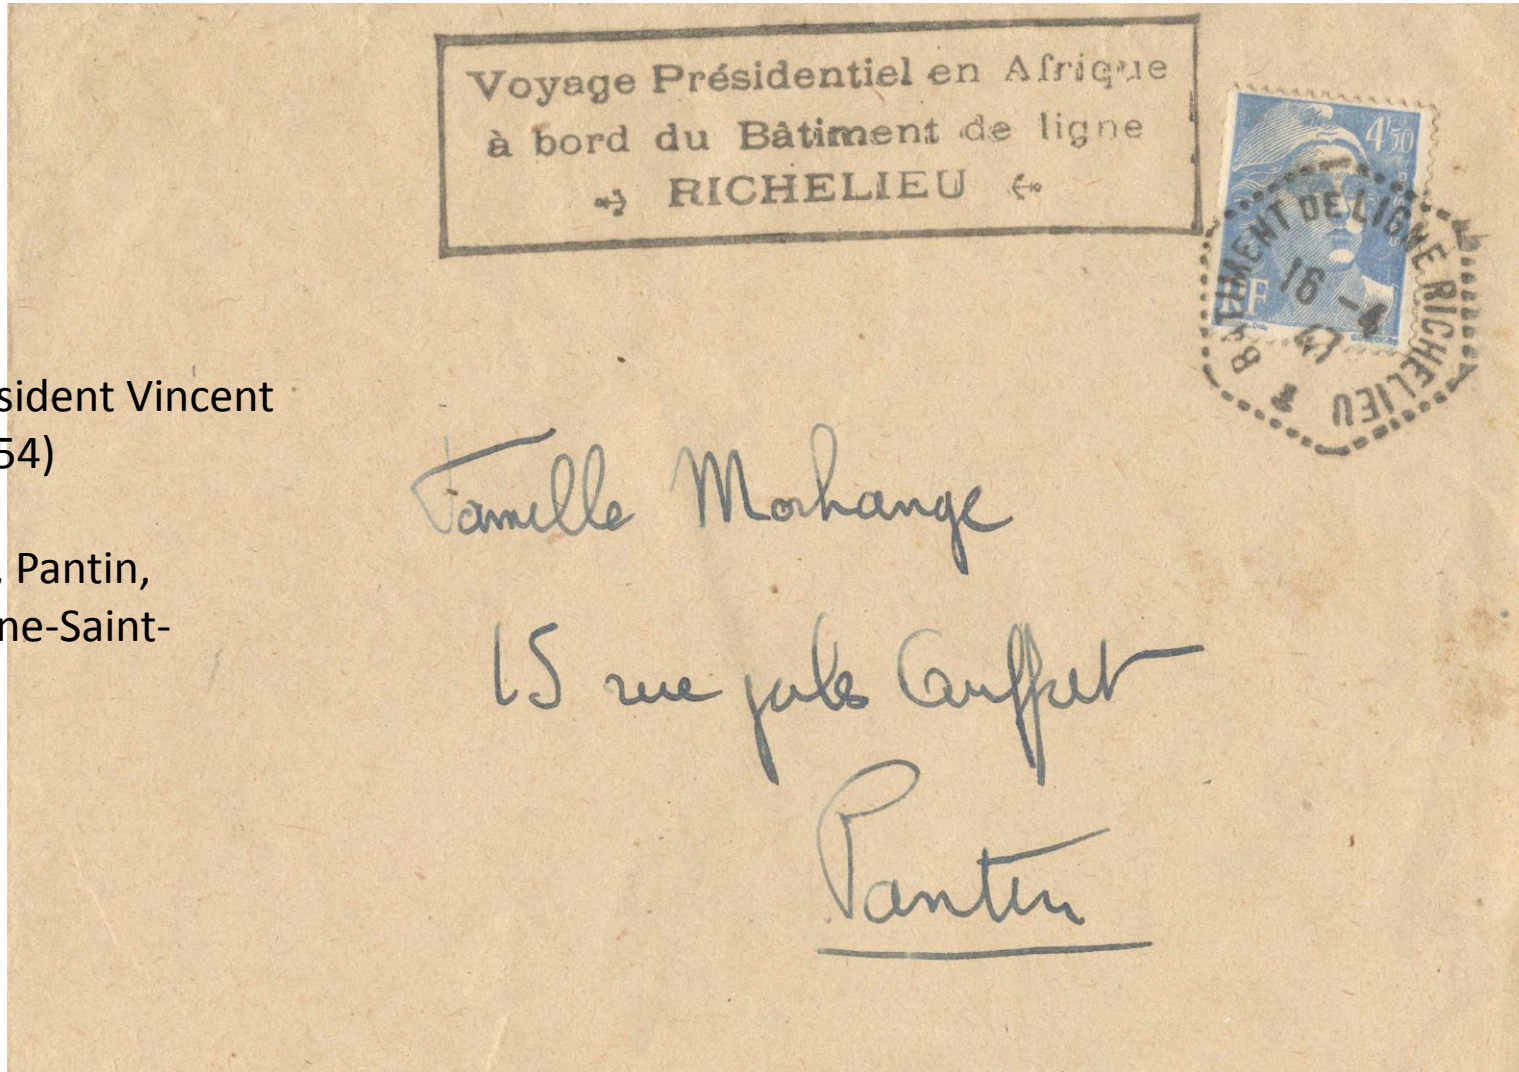 Voyage Présidentiel en Afrique
à bord du Bâtiment de ligne
RICHELIEU
4F50
RF
BATIMENT DE LIGNE RICHELIEU
16 -4
47
sident Vincent
54)
, Pantin,
ne-Saint-
Famille Morhange
15 rue jules Auffret
Pantin